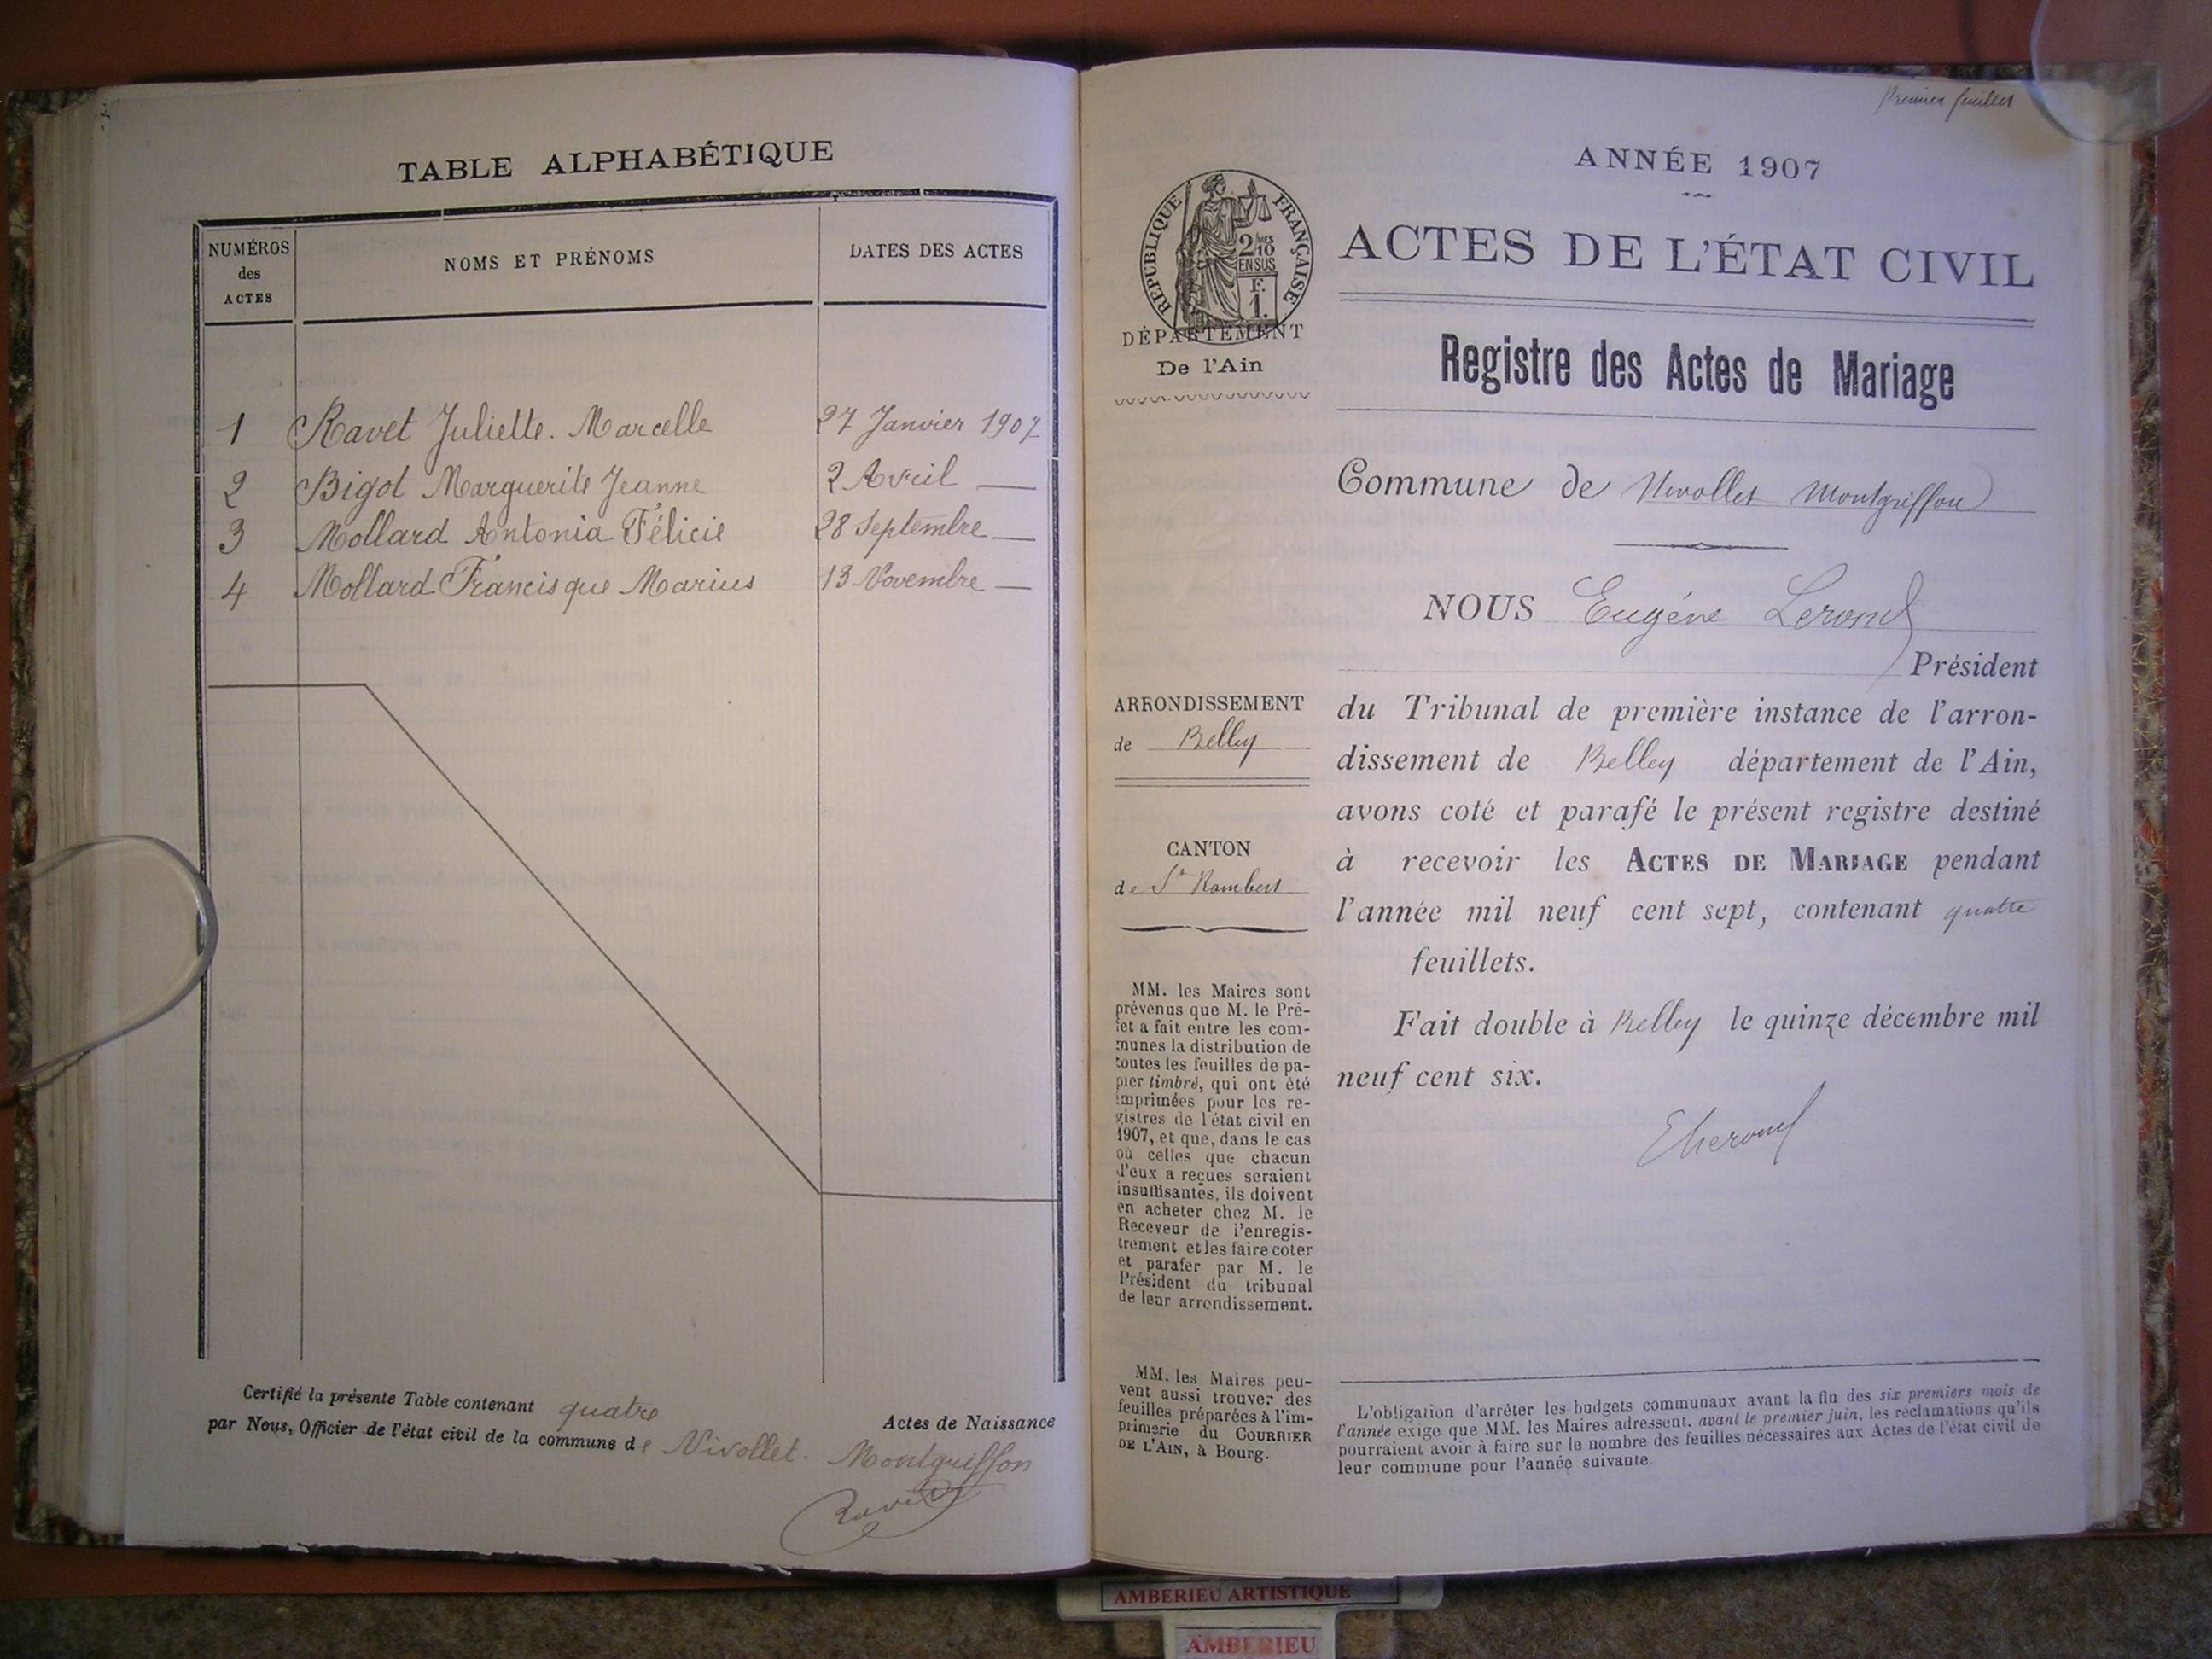 TABLE ALPHABÉTIQUE
NUMÉROS
des
ACTES
NOMS ET PRÉNOMS
DATES DES ACTES
1 Ravet Juliette. Marcelle 27 Janvier 1907
2 Bigot Marguerite Jeanne 2 Avril —
3 Mollard Antonia Félicie 28 Septembre —
4 Mollard Francisque Marius 13 Novembre —
Certifié la présente Table contenant quatre Actes de Naissance
par Nous, Officier de l'état civil de la commune de Nivollet. Montgriffon
Premier feuillet
ANNÉE 1907
RÉPUBLIQUE FRANÇAISE
2/10
EN SUS
F.
1.
DÉPARTEMENT
De l'Ain
ACTES DE L'ÉTAT CIVIL
Registre des Actes de Mariage
Commune de Nivollet Montgriffon
NOUS Eugène Lerond
Président
du Tribunal de première instance de l'arron-
dissement de Belley département de l'Ain,
avons coté et parafé le présent registre destiné
à recevoir les ACTES DE MARIAGE pendant
l'année mil neuf cent sept, contenant quatre
feuillets.
Fait double à Belley le quinze décembre mil
neuf cent six.
ARRONDISSEMENT
de Belley
CANTON
de St Rambert
MM. les Maires sont
prévenus que M. le Pré-
fet a fait entre les com-
munes la distribution de
toutes les feuilles de pa-
pier timbré, qui ont été
imprimées pour les re-
gistres de l'état civil en
1907, et que, dans le cas
où celles que chacun
d'eux a reçues seraient
insuffisantes, ils doivent
en acheter chez M. le
Receveur de l'enregis-
trement et les faire coter
et parafer par M. le
Président du tribunal
de leur arrondissement.
MM. les Maires peu-
vent aussi trouver des
feuilles préparées à l'im-
primerie du COURRIER
DE L'AIN, à Bourg.
L'obligation d'arrêter les budgets communaux avant la fin des six premiers mois de
l'année exige que MM. les Maires adressent, avant le premier juin, les réclamations qu'ils
pourraient avoir à faire sur le nombre des feuilles nécessaires aux Actes de l'état civil de
leur commune pour l'année suivante.
AMBERIEU ARTISTIQUE
AMBERIEU